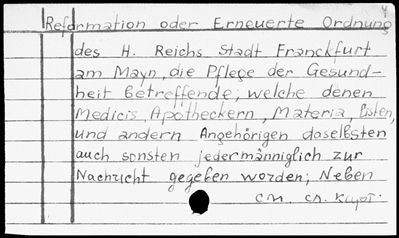 Reformation oder Erneuerte Ordnung
des H. Reichs Stadt Franckfurt
am Mayn, die Pflege der Gesund-
heit betreffende; welche denen
Medicis, Apotheckern, Materialisten,
und andern Angehörigen daselbsten
auch sonsten jedermänniglich zur
Nachricht gegeben worden; Neben